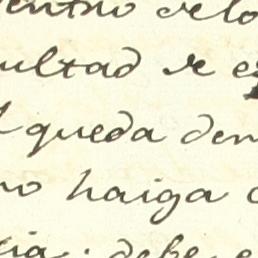 entro de lo
ultad de e
queda den
no haiga
cia. debe